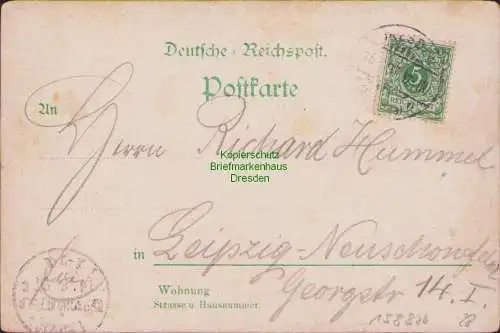 Deutsche Reichspost.
Postkarte
An
Herrn Richard Hummel
Kopierschutz
Briefmarkenhaus
Dresden
in Leipzig-Neuschönefeld
Wohnung
Georgstr 14. I.
Strasse u Hausnummer
5